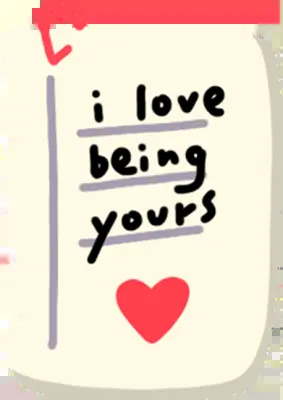 i love
being
yours